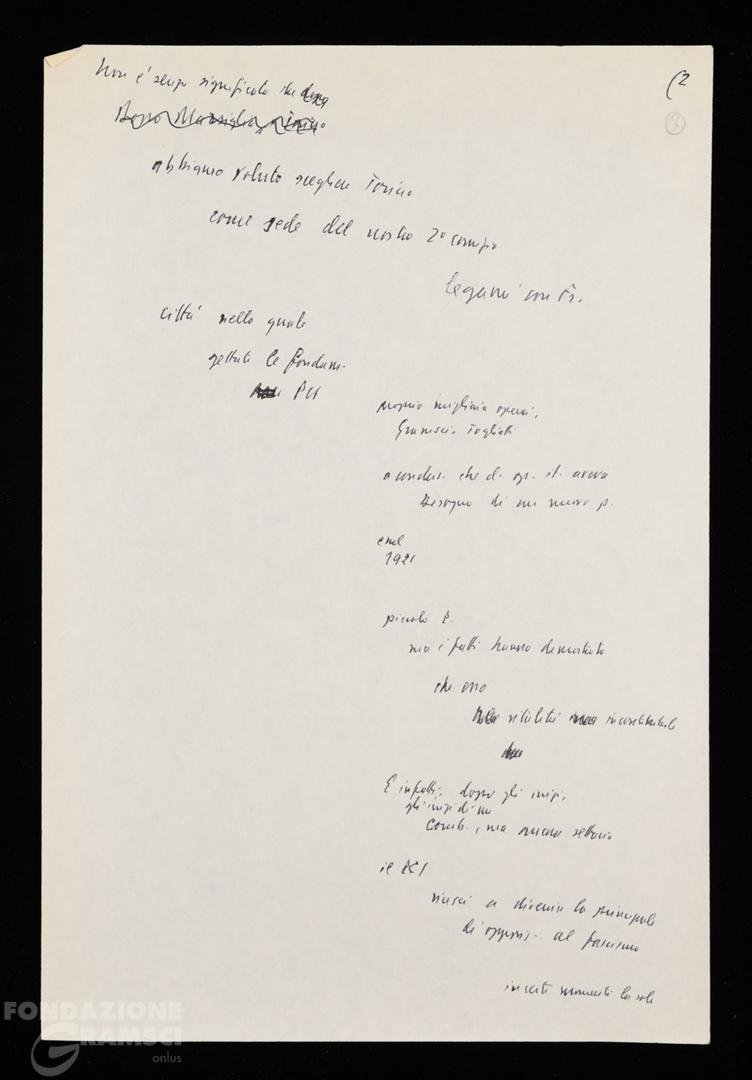 (2
3
Non è senza significato che dopo
Dopo Marsiglia
abbiamo voluto scegliere Torino
come sede del nostro 2° comizio
legami con Fr.
città nella quale
gettate le fondam.
PCI
proprio migliaia operai,
Gramsci, Togliatti
a conclus. che cl. op. it. aveva
bisogno di un nuovo p.
e nel
1921
piccolo P.
ma i fatti hanno dimostrato
che esso
vitalità insostituibile
E infatti, dopo gli inizi,
gli inizi di un
comb., ma ancora settario
il PCI
riuscì a divenire la principale
di oppos. al fascismo
in certi momenti la sola
FONDAZIONE
GRAMSCI
onlus